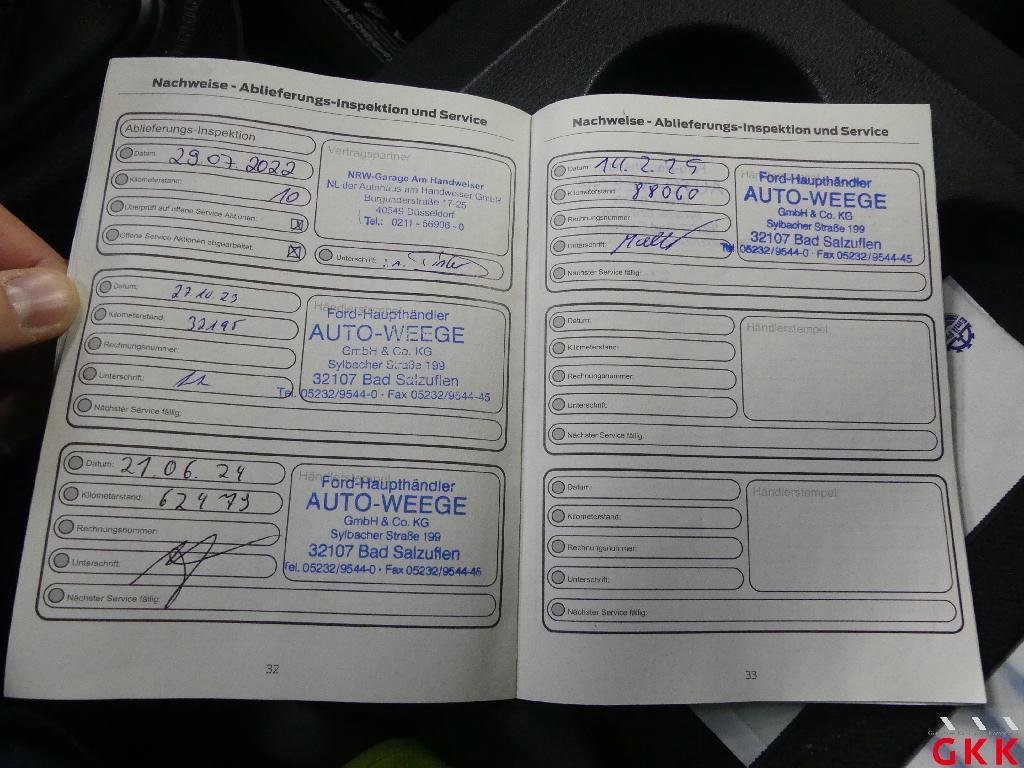 Nachweise - Ablieferungs-Inspektion und Service
Ablieferungs-Inspektion
Datum: 29.07.2022
Kilometerstand: 10
Überprüft auf offene Service Aktionen: ☒
Offene Service Aktionen abgearbeitet: ☒
Vertragspartner
NRW-Garage Am Handweiser
NL der Autohaus am Handweiser GmbH
Burgunderstraße 17-25
40549 Düsseldorf
Tel.: 0211 - 56906 - 0
Unterschrift:
Datum: 27.10.23
Kilometerstand: 32195
Rechnungsnummer:
Unterschrift:
Nächster Service fällig:
Händlerstempel
Ford-Haupthändler
AUTO-WEEGE
GmbH & Co. KG
Sylbacher Straße 199
32107 Bad Salzuflen
Tel. 05232/9544-0 · Fax 05232/9544-45
Datum: 21.06.24
Kilometerstand: 62479
Rechnungsnummer:
Unterschrift:
Nächster Service fällig:
Händlerstempel
Ford-Haupthändler
AUTO-WEEGE
GmbH & Co. KG
Sylbacher Straße 199
32107 Bad Salzuflen
Tel. 05232/9544-0 · Fax 05232/9544-45
32
Nachweise - Ablieferungs-Inspektion und Service
Datum: 14.2.25
Kilometerstand: 88060
Rechnungsnummer:
Unterschrift:
Nächster Service fällig:
Ford-Haupthändler
AUTO-WEEGE
GmbH & Co. KG
Sylbacher Straße 199
32107 Bad Salzuflen
Tel. 05232/9544-0 · Fax 05232/9544-45
Datum:
Kilometerstand:
Rechnungsnummer:
Unterschrift:
Nächster Service fällig:
Händlerstempel
Datum:
Kilometerstand:
Rechnungsnummer:
Unterschrift:
Nächster Service fällig:
Händlerstempel
33
GKK